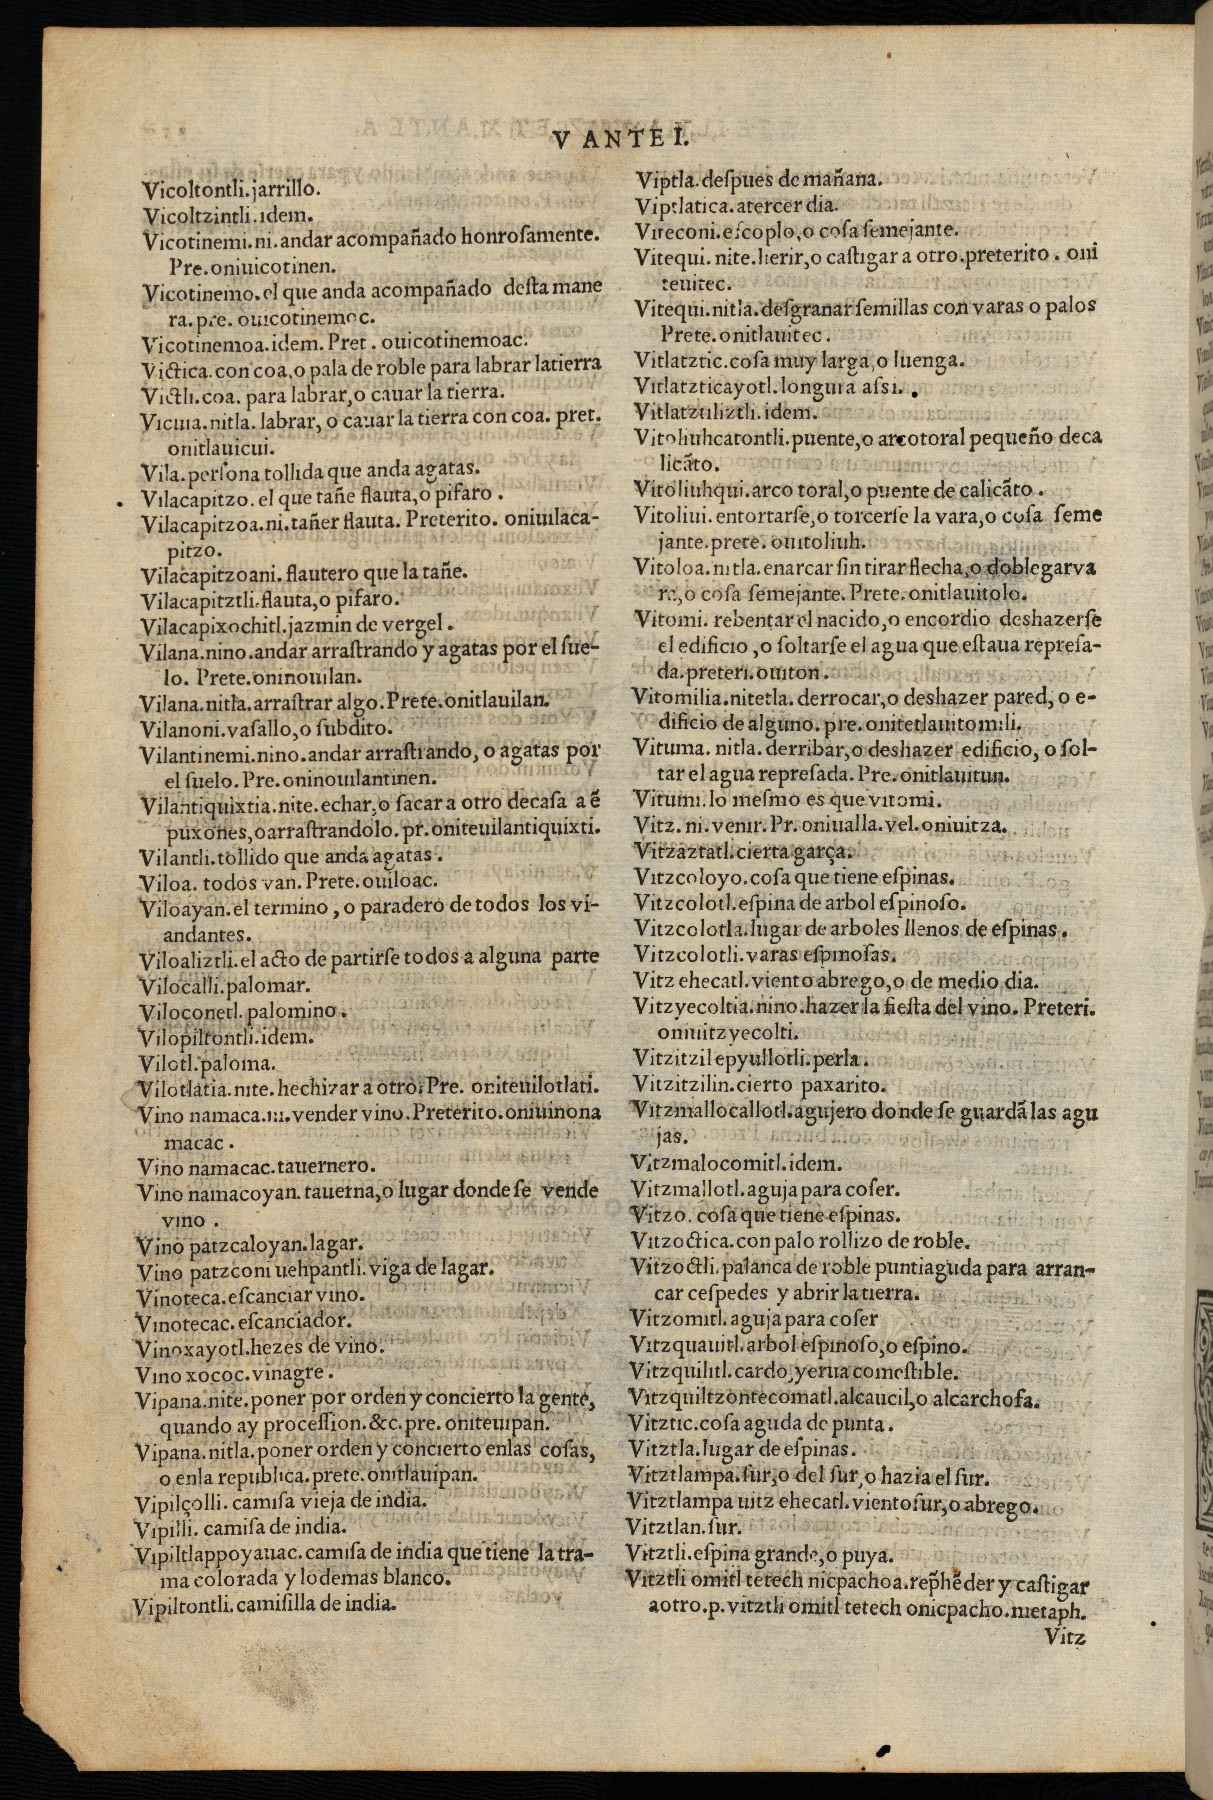 V ANTE I.
Vicoltontli.jarrillo.
Vicoltzintli.idem.
Vicotinemi.ni.andar acompañado honrosamente.
Pre.oniuicotinen.
Vicotinemo.el que anda acompañado desta mane
ra.pre. ouicotinemoc.
Vicotinemoa.idem. Pret. ouicotinemoac.
Victica.con coa,o pala de roble para labrar latierra
Victli.coa. para labrar,o cauar la tierra.
Vicuia.nitla. labrar, o cauar la tierra con coa. pret.
onitlauicui.
Vila.persona tollida que anda agatas.
Vilacapitzo.el que tañe flauta,o pifaro.
Vilacapitzoa.ni.tañer flauta. Preterito. oniuilaca-
pitzo.
Vilacapitzoani.flautero que la tañe.
Vilacapitztli.flauta,o pifaro.
Vilacapixochitl.jazmin de vergel.
Vilana.nino.andar arrastrando y agatas por el sue-
lo. Prete.oninouilan.
Vilana.nitla.arrastrar algo.Prete.onitlauilan.
Vilanoni.vasallo,o subdito.
Vilantinemi.nino.andar arrastrando, o agatas por
el suelo. Pre.oninouilantinen.
Vilantiquixtia.nite.echar,o sacar a otro decasa a ẽ
puxones,oarrastrandolo.pr.oniteuilantiquixti.
Vilantli.tollido que anda agatas.
Viloa. todos van. Prete.ouiloac.
Viloayan.el termino, o paradero de todos los vi-
andantes.
Viloaliztli.el acto de partirse todos a alguna parte
Vilocalli.palomar.
Viloconetl.palomino.
Vilopiltontli.idem.
Vilotl.paloma.
Vilotlatia.nite.hechizar a otro.Pre. oniteuilotlati.
Vino namaca.ni.vender vino.Preterito.oniuinona
macac.
Vino namacac.tauernero.
Vino namacoyan.tauerna,o lugar donde se vende
vino.
Vino patzcaloyan.lagar.
Vino patzconi uehpantli.viga de lagar.
Vinoteca.escanciar vino.
Vinotecac.escanciador.
Vinoxayotl.hezes de vino.
Vino xococ.vinagre.
Vipana.nite.poner por orden y concierto la gente,
quando ay procession.&c.pre.oniteuipan.
Vipana.nitla.poner orden y concierto enlas cosas,
o enla republica.prete.onitlauipan.
Vipilçolli. camisa vieja de india.
Vipilli. camisa de india.
Vipiltlappoyauac.camisa de india que tiene la tra-
ma colorada y lodemas blanco.
Vipiltontli.camisilla de india.
Viptla.despues de mañana.
Viptlatica.atercer dia.
Viteconi.escoplo,o cosa semejante.
Vitequi. nite.herir,o castigar a otro.preterito. oni
teuitec.
Vitequi.nitla.desgranar semillas con varas o palos
Prete.onitlauitec.
Vitlatztic.cosa muy larga,o luenga.
Vitlatzticayotl.longura assi.
Vitlatztiliztli.idem.
Vitoliuhcatontli.puente,o arcotoral pequeño deca
licãto.
Vitoliuhqui.arco toral,o puente de calicãto.
Vitoliui.entortarse,o torcerse la vara,o cosa seme
jante.prete. ouitoliuh.
Vitoloa.nitla.enarcar sin tirar flecha,o doblegarva
ra,o cosa semejante. Prete.onitlauitolo.
Vitomi. rebentar el nacido,o encordio deshazerse
el edificio,o soltarse el agua que estaua represa-
da.preteri.ouiton.
Vitomilia.nitetla.derrocar,o deshazer pared, o e-
dificio de alguno. pre.onitetlauitomili.
Vituma. nitla. derribar,o deshazer edificio, o sol-
tar el agua represada. Pre.onitlauitun.
Vitumi.lo mesmo es que vitomi.
Vitz. ni.venir. Pr.oniualla.vel.oniuitza.
Vitzaztatl.cierta garça.
Vitzcoloyo.cosa que tiene espinas.
Vitzcolotl.espina de arbol espinoso.
Vitzcolotla.lugar de arboles llenos de espinas.
Vitzcolotli.varas espinosas.
Vitz ehecatl.viento abrego,o de medio dia.
Vitzyecoltia.nino.hazer la fiesta del vino. Preteri.
oniuitzyecolti.
Vitzitzil epyullotli.perla.
Vitzitzilin.cierto paxarito.
Vitzmallocallotl.agujero donde se guardã las agu
jas.
Vitzmalocomitl.idem.
Vitzmallotl.aguja para coser.
Vitzo. cosa que tiene espinas.
Vitzoctica.con palo rollizo de roble.
Vitzoctli.palanca de roble puntiaguda para arran-
car cespedes y abrir la tierra.
Vitzomitl.aguja para coser
Vitzquauitl.arbol espinoso,o espino.
Vitzquilitl.cardo,yerua comestible.
Vitzquiltzontecomatl.alcaucil,o alcarchofa.
Vitztic.cosa aguda de punta.
Vitztla.lugar de espinas.
Vitztlampa.sur,o del sur,o hazia el sur.
Vitztlampa uitz ehecatl.vientosur,o abrego.
Vitztlan.sur.
Vitztli.espina grande,o puya.
Vitztli omitl tetech nicpachoa.rep̃hẽder y castigar
aotro.p.vitztli omitl tetech onicpacho.metaph.
Vitz